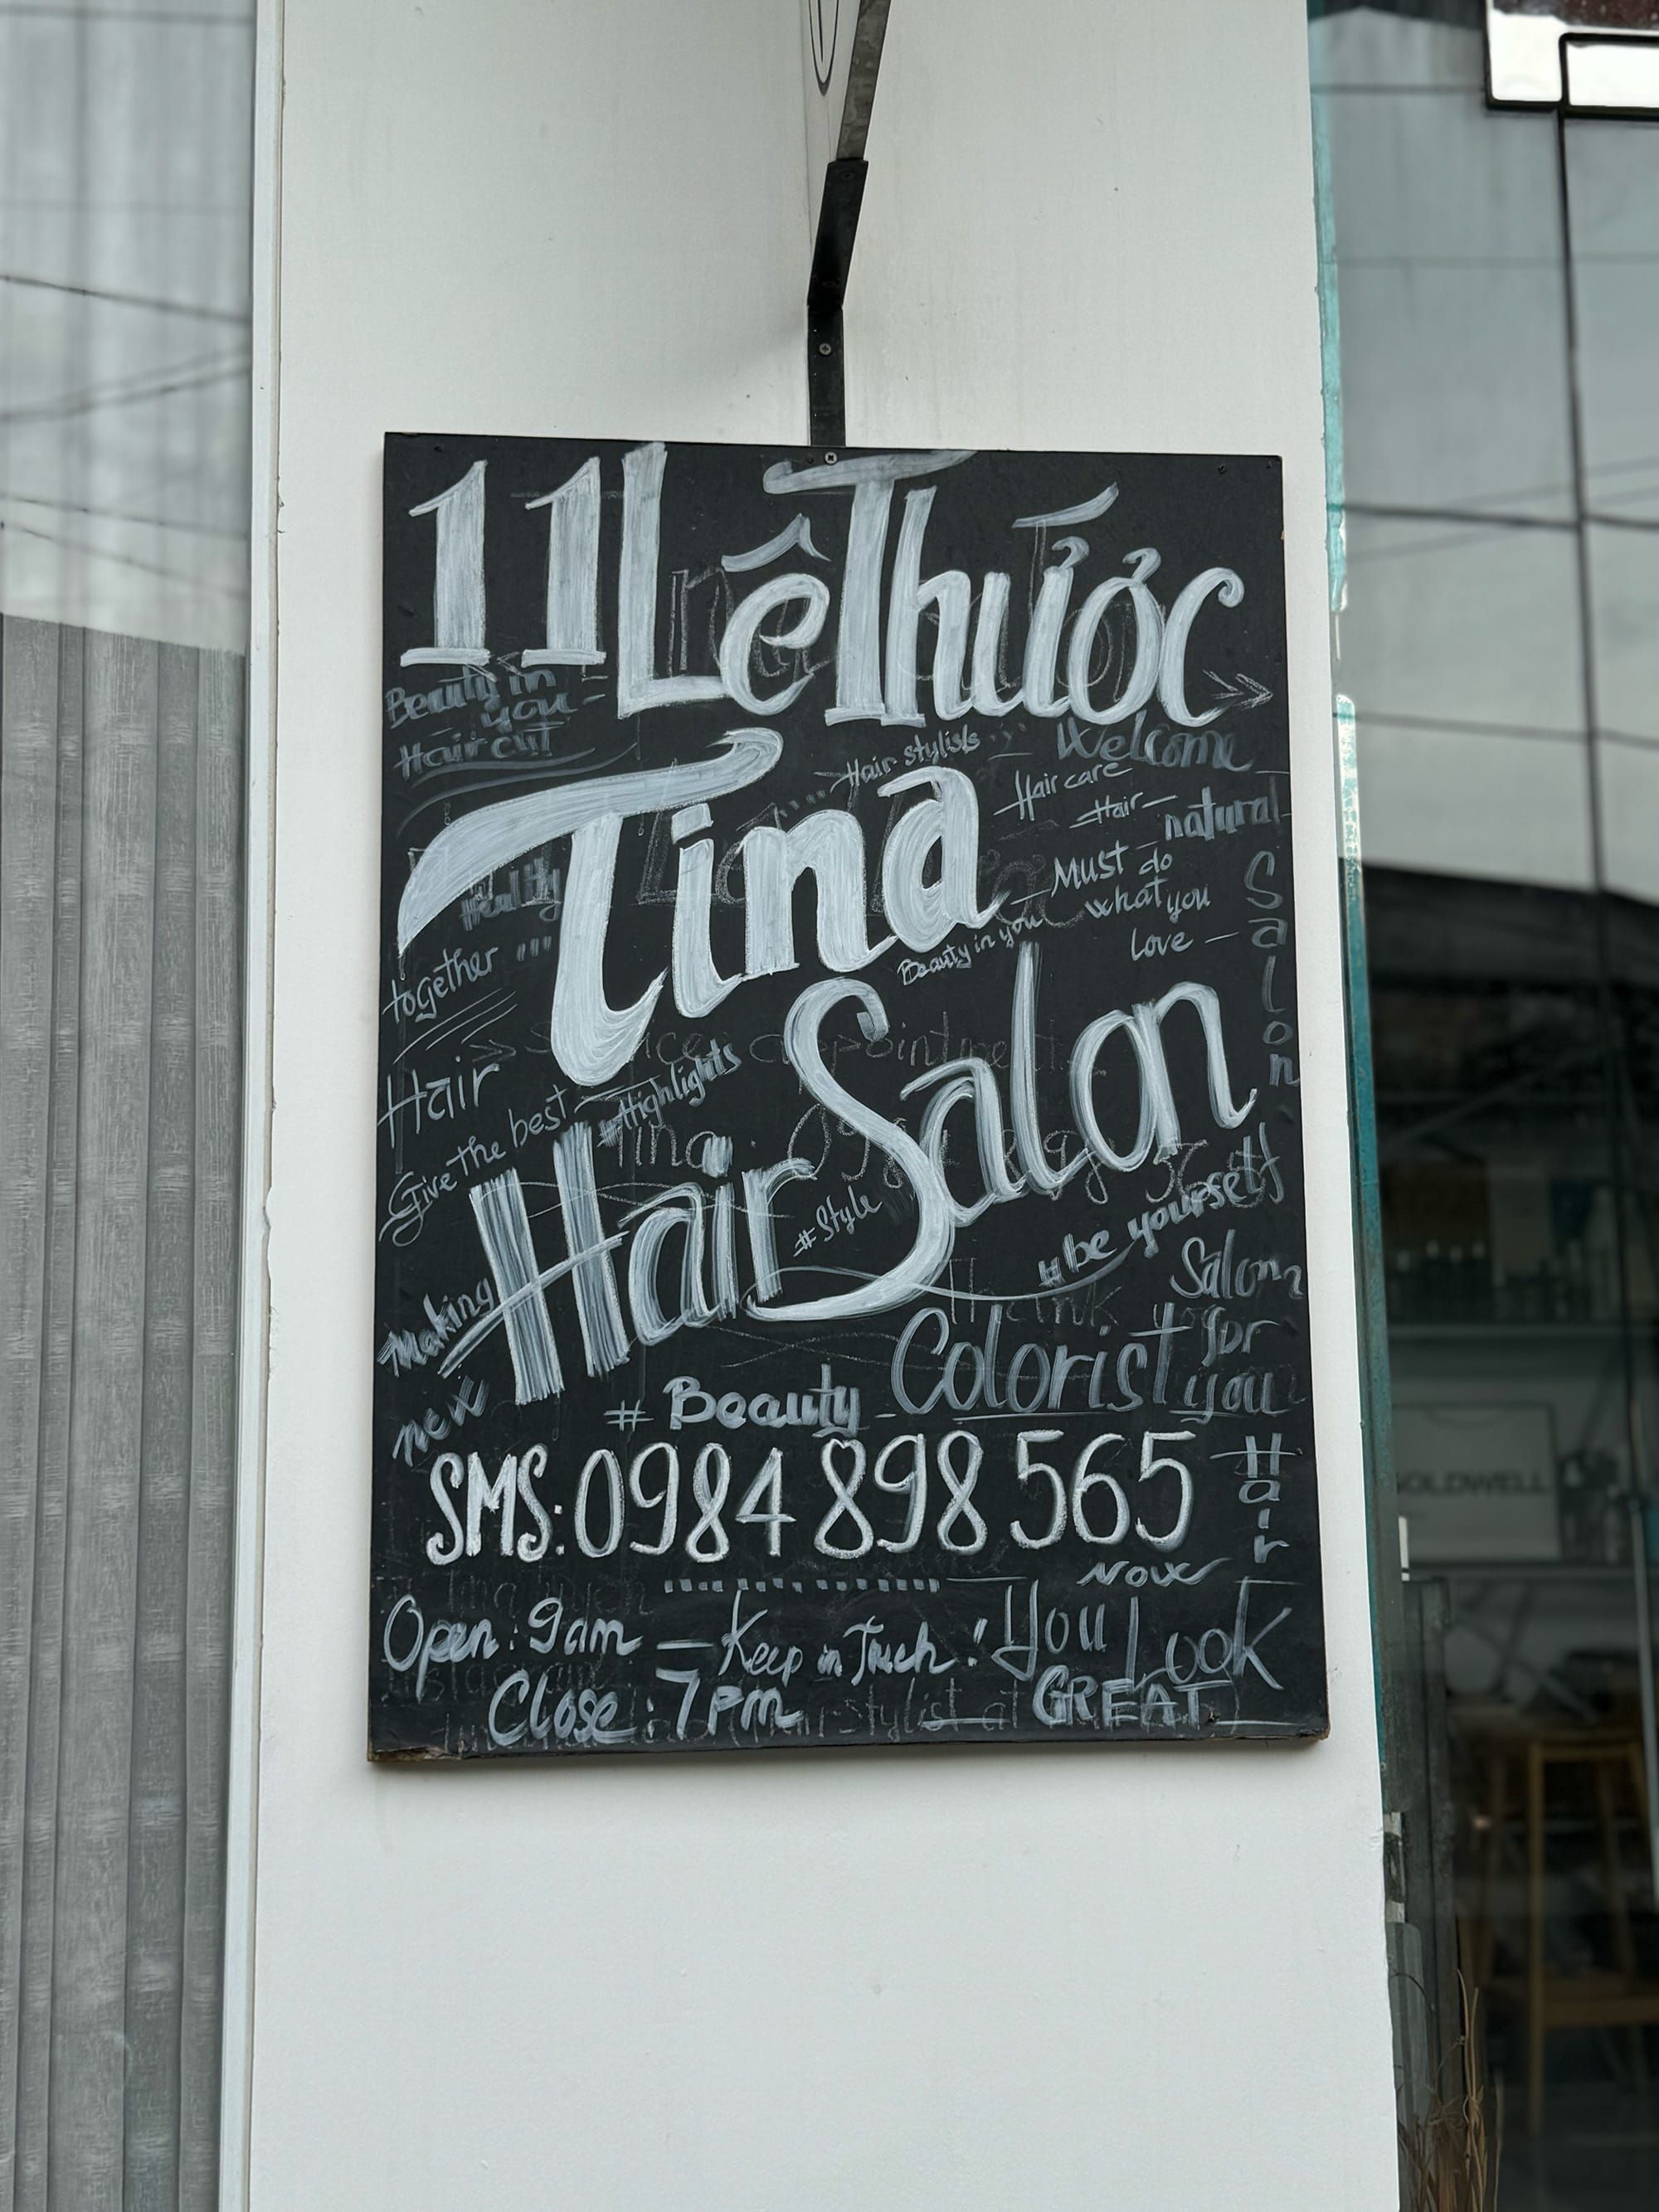 11 Lê Thước
Beauty in
you
Hair cut
Welcome
Hair stylists
Hair care
Hair
natural
Tina
Healthy
together
Must do
what you
love
Beauty in you
Salon
Hair
Give the best
#Highlights
Hair Salon
#Style
#be yourself
Making
new
Salon
for
you
Colorist
# Beauty
SMS: 0984 898 565
Hair
Now
Open: 9am — Keep in Touch! You Look
Close: 7pm
GREAT
GOLDWELL